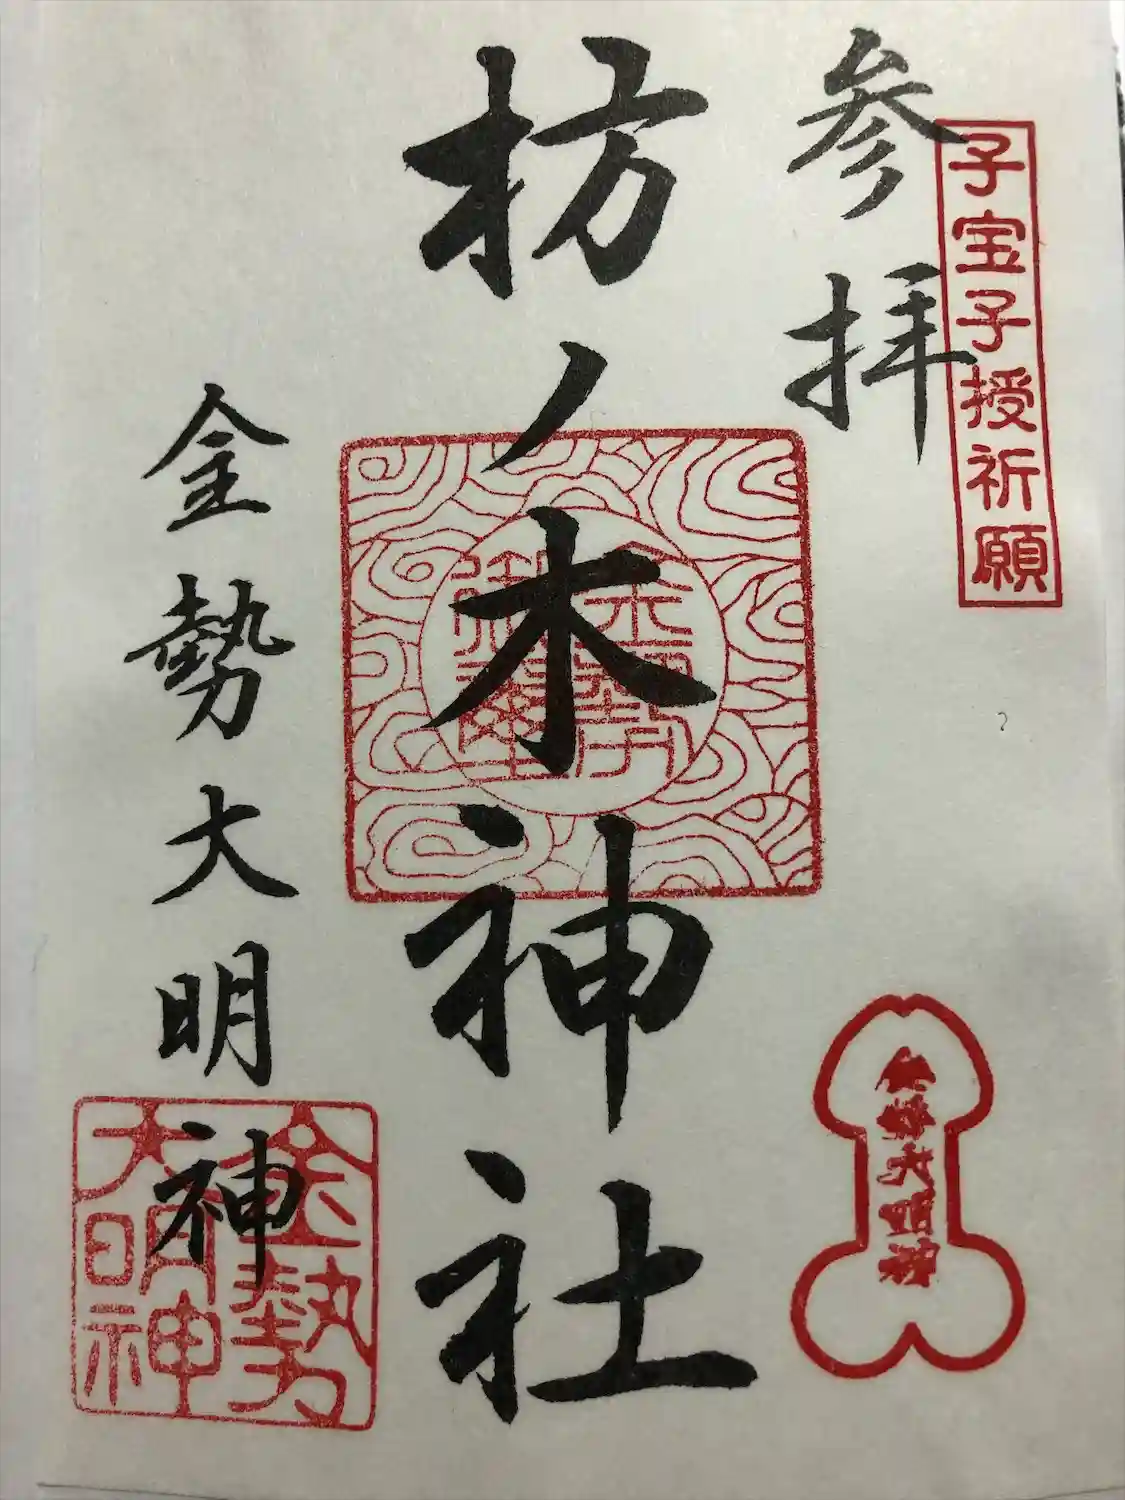 子宝子授祈願
参拝
枋ノ木神社
金勢
御璽
金勢大明神
金勢大明神
金勢
大明神